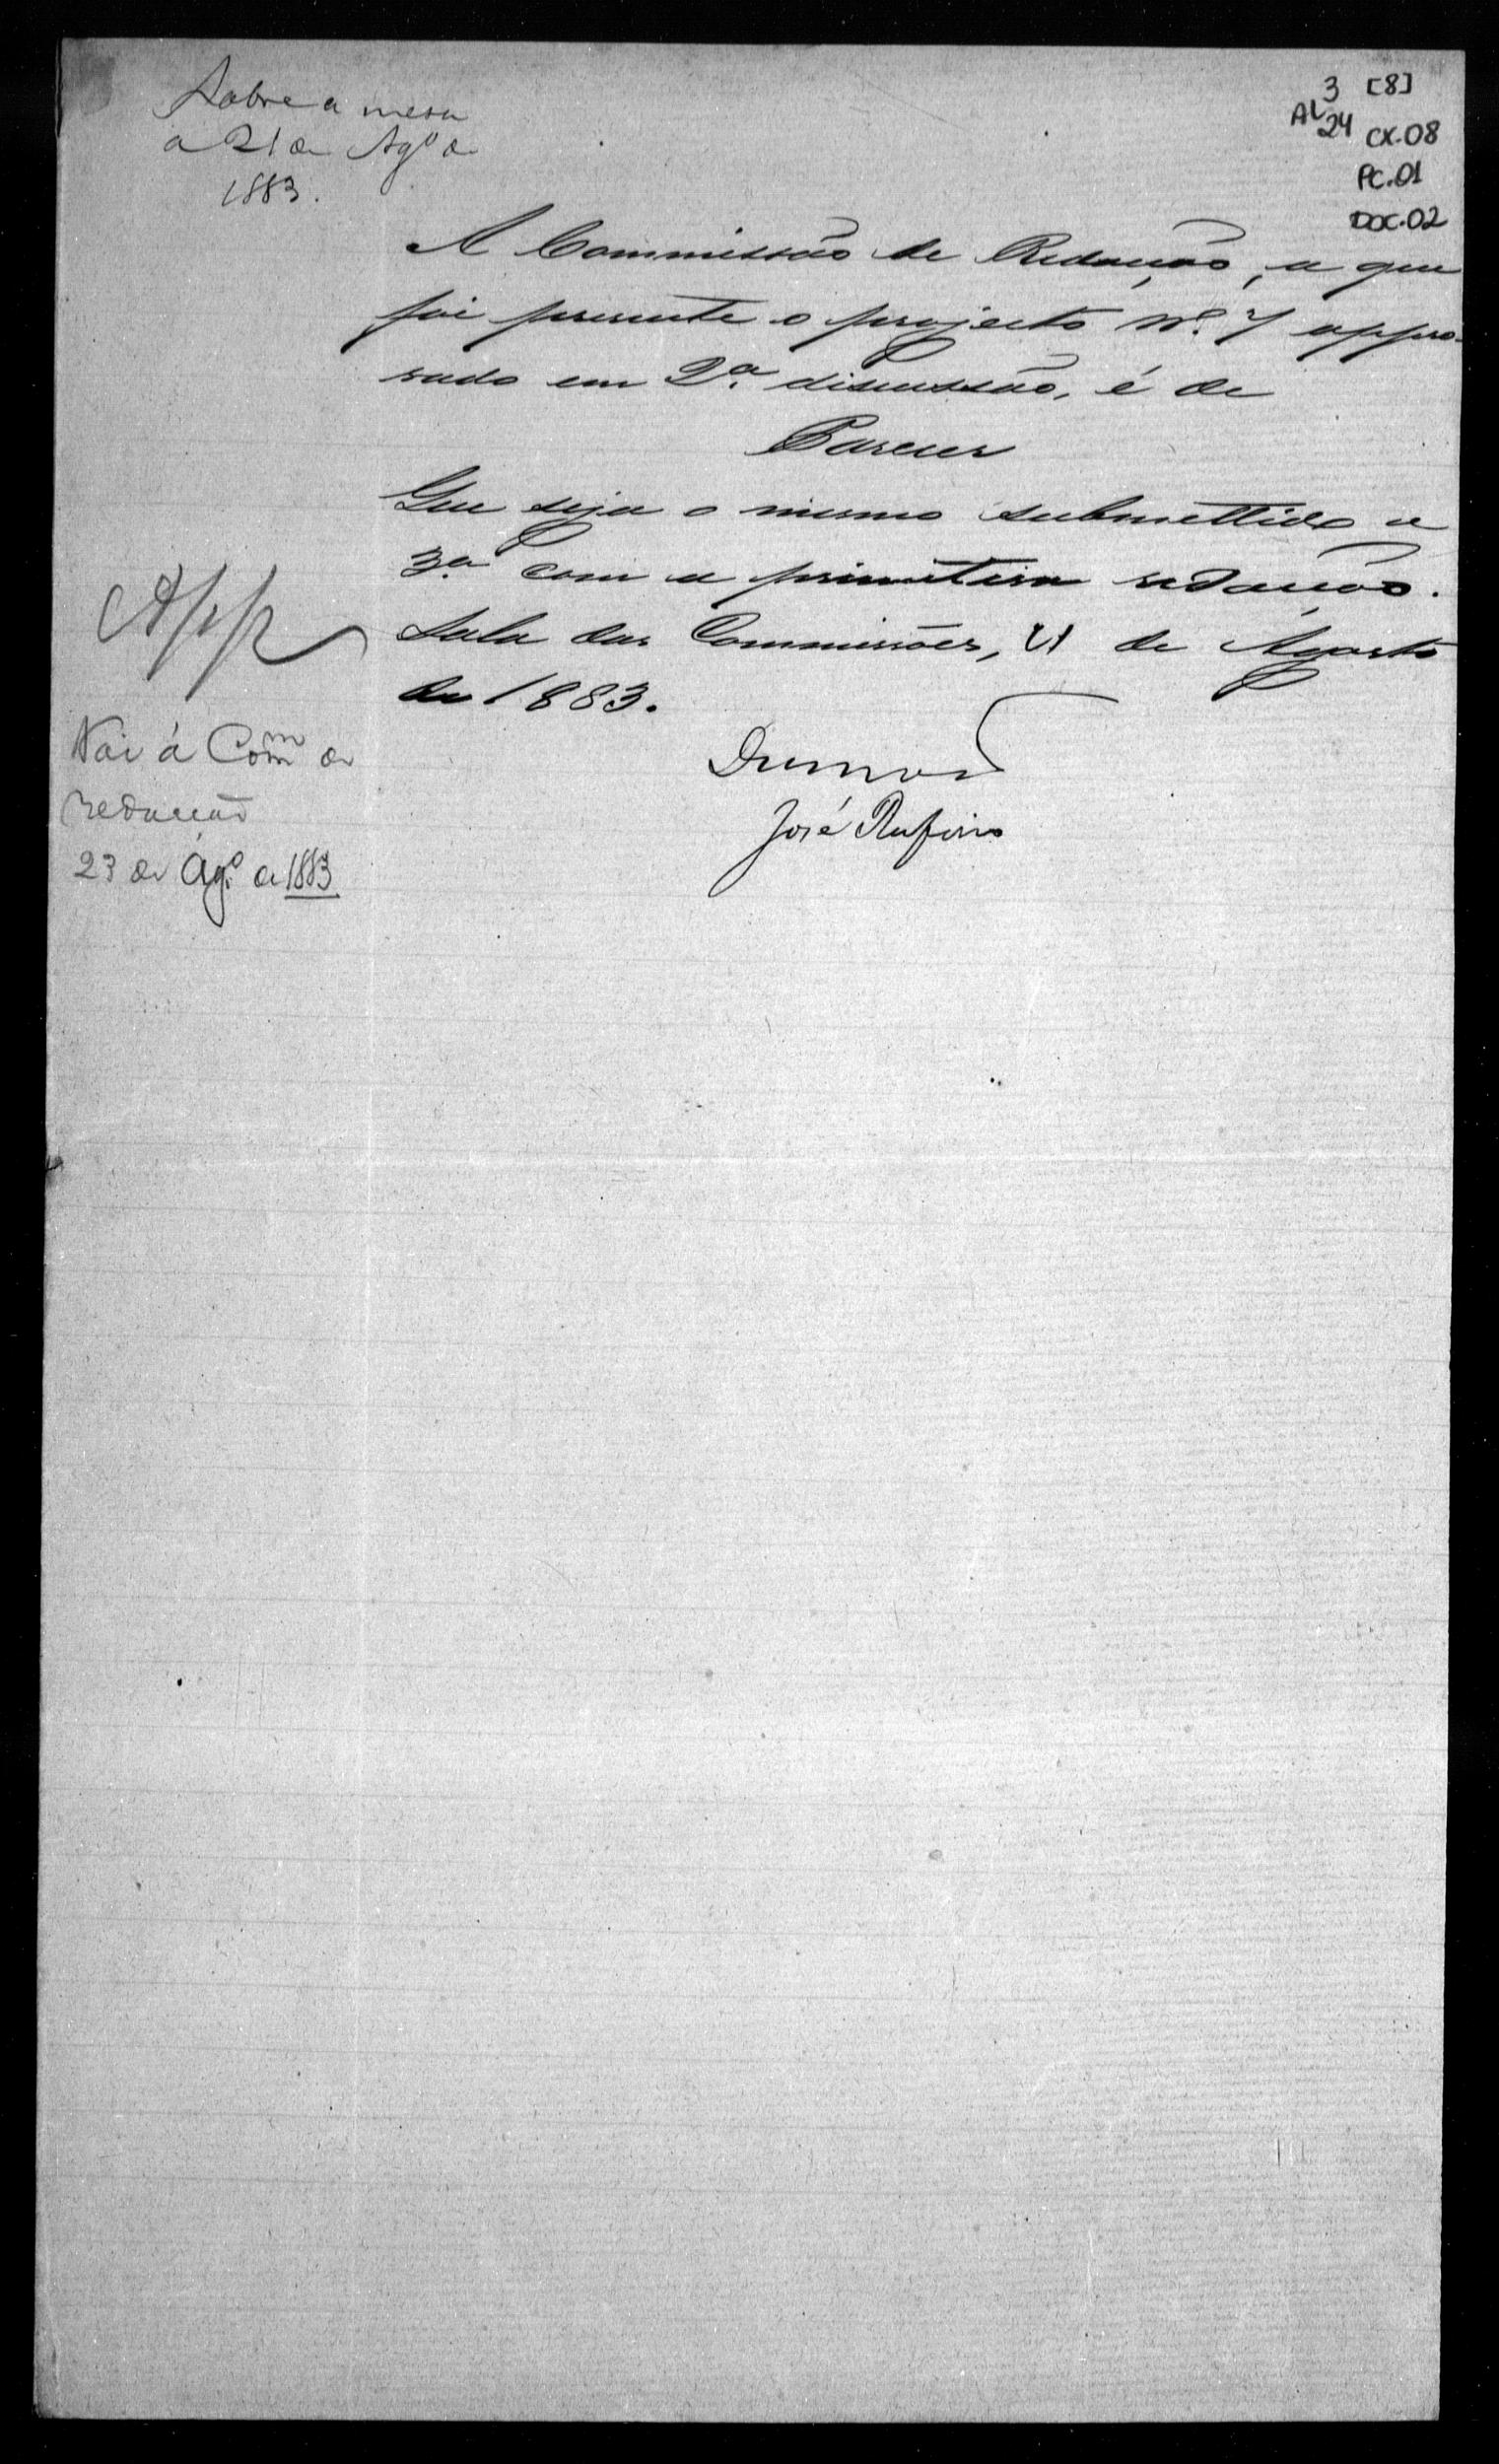 Sobre a mesa
a 21 de Agº de
1883.
3 [8]
AL 24 CX.08
PC.01
DOC.02
A Commissão de Redacção, a que
foi presente o projecto nº. 7 appro-
vado em 2ª discussão, é de
Parecer
Que seja o mesmo submettido a
3ª com a primitiva redacção.
Sala das Commissões, 21 de Agosto
de 1883.
José Rufino
App
Vai á Comm de
redacção
23 de Agº de 1883